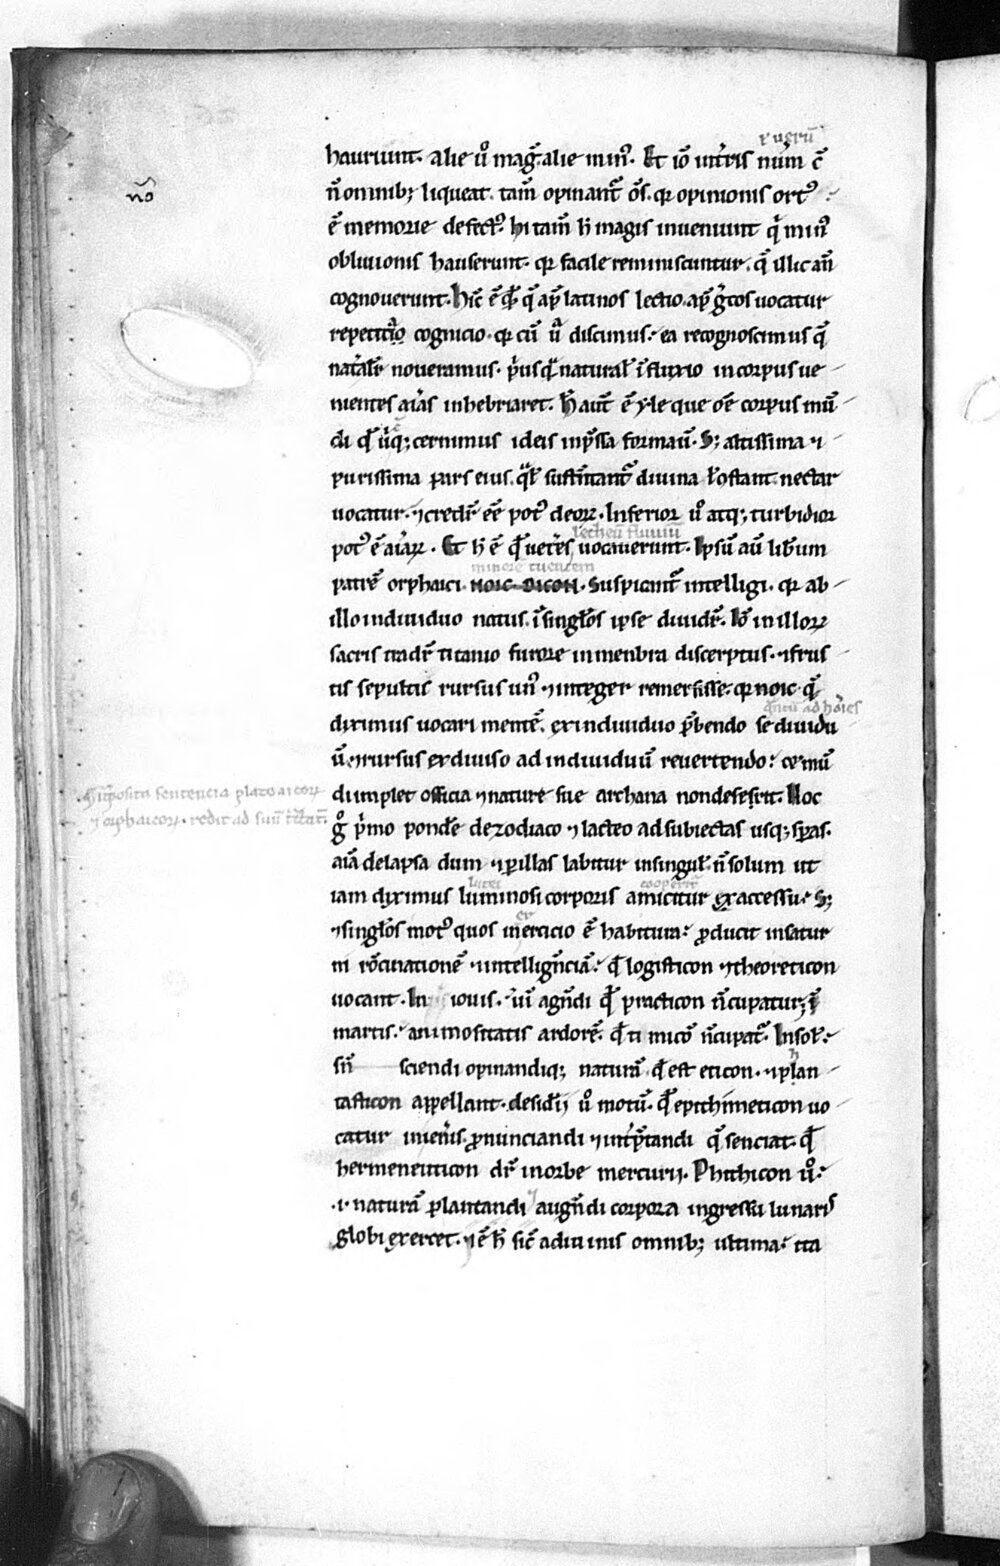 ⁊ uerū
hauriunt. alie ů mag̃. alie min᷒. Et iõ in t̃ris nũm ẽ
nō
ñ omnibꝫ liqueat. tam̃ opinant᷑ õs. qr opinionis ort᷒
ẽ memorie defect᷒. hi tam̃ h̃ magis inueniunt q̃ min᷒
obliuionis hauserunt. qr facile reminiscuntur. q̃ illic añ
cognouerunt. hic̃ ẽ q̃ q̃ ap̃ latinos lectio. ap̃ g̃cos uocatur
repetita cognicio. qr cũ ũa discimus. ea recognoscimus q̃
nat̃alr̃ noueramus. p̃us q̃ natural̃ ĩfluxio in corpus ue
nientes aĩas inhebriaret. h̃ aut̃ ẽ yle que õe corpus mũ
di q̃ uƀiqꝫ cernimus ideis inp̃ssa formauĩ. Sꝫ altissima ⁊
purissima pars eius. q̃ sustentant᷑ diuina ł ɔstant. nectar
uocatur. ⁊ credit᷑ eẽ pot᷒ deoꝝ. Inferior ů atqꝫ turbidior
pot᷒ ẽ aĩaꝝ. Et h̃ ẽ q̃ uet̃es uocauerunt. Ipsũ aũ liƀum
letheũ fluuiũ
minorẽ tuentem
patrẽ orphaici noic. dicon. Suspicant᷑ intelligi. qr ab
illo indiuiduo natus. ĩ singłos ipse diuidit᷑. Iõ in illoꝝ
sacris tradit᷑ titanio furore in menbra discerptus. ⁊ frus
tis sepultis rursus un᷒ ⁊ integer remersisse. qr noic q̃
diximus uocari mentẽ. ex indiuiduo p̃bendo se diuidu
q̃ntũ ad hõies
ũ. ⁊ rursus ex diuiso ad indiuiduũ reuertendo. ⁊ mũ
di implet officia ⁊ nature sue archana non deserit. Hoc
Int̃posita sentencia platoaicoꝝ
⁊ orphaicoꝝ. redit ad suũ t̃ctat̃.
g̊ p̃mo pondẽ de zodiaco ⁊ lacteo ad subiectas usqꝫ sp̃as.
aĩa delapsa dum ⁊ p̃ illas labitur in singul̃. ñ solum ut
iam diximus luminosi corporis amicitur ex accessu. Sꝫ
⁊ singłos mot᷒ quos in ercicio ẽ habitura. p̃ducit in satur
ni r̃ocinationẽ ⁊ intelligñciã. q̃ logisticon ⁊ theoreticon
uocant. In iouis. uĩ agñdi q̃ practicon ñcupatur. ĩ
martis. animositatis ardorẽ. q̃ ti micõ ñcupat᷑. In sol̃.
sñ sciendi opinandiqꝫ naturã. q̃ est eticon. ⁊ plan
tasticon appellant. desid̃ij ů motũ. q̃ epithimeticon uo
catur in uen̄is. p̃nunciandi ⁊ int̃p̃tandi q̃ senciat. q̃
hermeneuticon dr̃ in orbe mercurij. Phithicon ů.
.i. naturã plantandi ⁊ augñdi corpora ingressu lunaris
globi exercet. ⁊ ẽ h̃ sic̃ a diuinis omnibꝫ ultima. ita